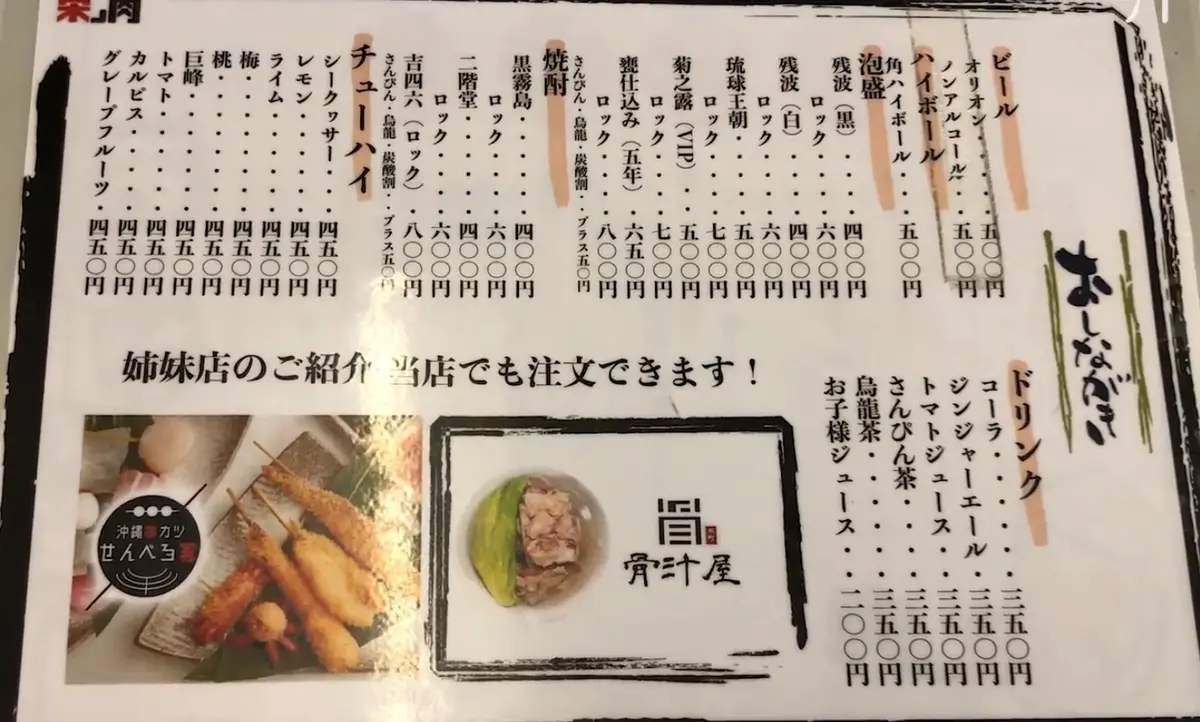 おしながき
ビール
オリオン・・・・・・五〇〇円
ノンアルコール・・五〇〇円
ハイボール
角ハイボール・・・五〇〇円
泡盛
残波（黒）・・・四〇〇円
ロック・・・・六〇〇円
残波（白）・・・四〇〇円
ロック・・・・六〇〇円
琉球王朝・・・・五〇〇円
ロック・・・・七〇〇円
菊之露（VIP）・・五〇〇円
ロック・・・・七〇〇円
甕仕込み（五年）・六五〇円
ロック・・・・八〇〇円
さんぴん・烏龍・炭酸割・・プラス五〇円
焼酎
黒霧島・・・・・四〇〇円
ロック・・・・六〇〇円
二階堂・・・・・四〇〇円
ロック・・・・六〇〇円
吉四六（ロック）・八〇〇円
さんぴん・烏龍・炭酸割・・プラス五〇円
チューハイ
シークヮサー・・・四五〇円
レモン・・・・・四五〇円
ライム・・・・・四五〇円
梅・・・・・・四五〇円
桃・・・・・・四五〇円
巨峰・・・・・・四五〇円
トマト・・・・・四五〇円
カルピス・・・・・四五〇円
グレープフルーツ・・四五〇円
ドリンク
コーラ・・・・・・三五〇円
ジンジャーエール・・三五〇円
トマトジュース・・・三五〇円
さんぴん茶・・・・三五〇円
烏龍茶・・・・・・三五〇円
お子様ジュース・・・二〇〇円
姉妹店のご紹介 当店でも注文できます！
沖縄串カツ
せんべろ
骨汁屋